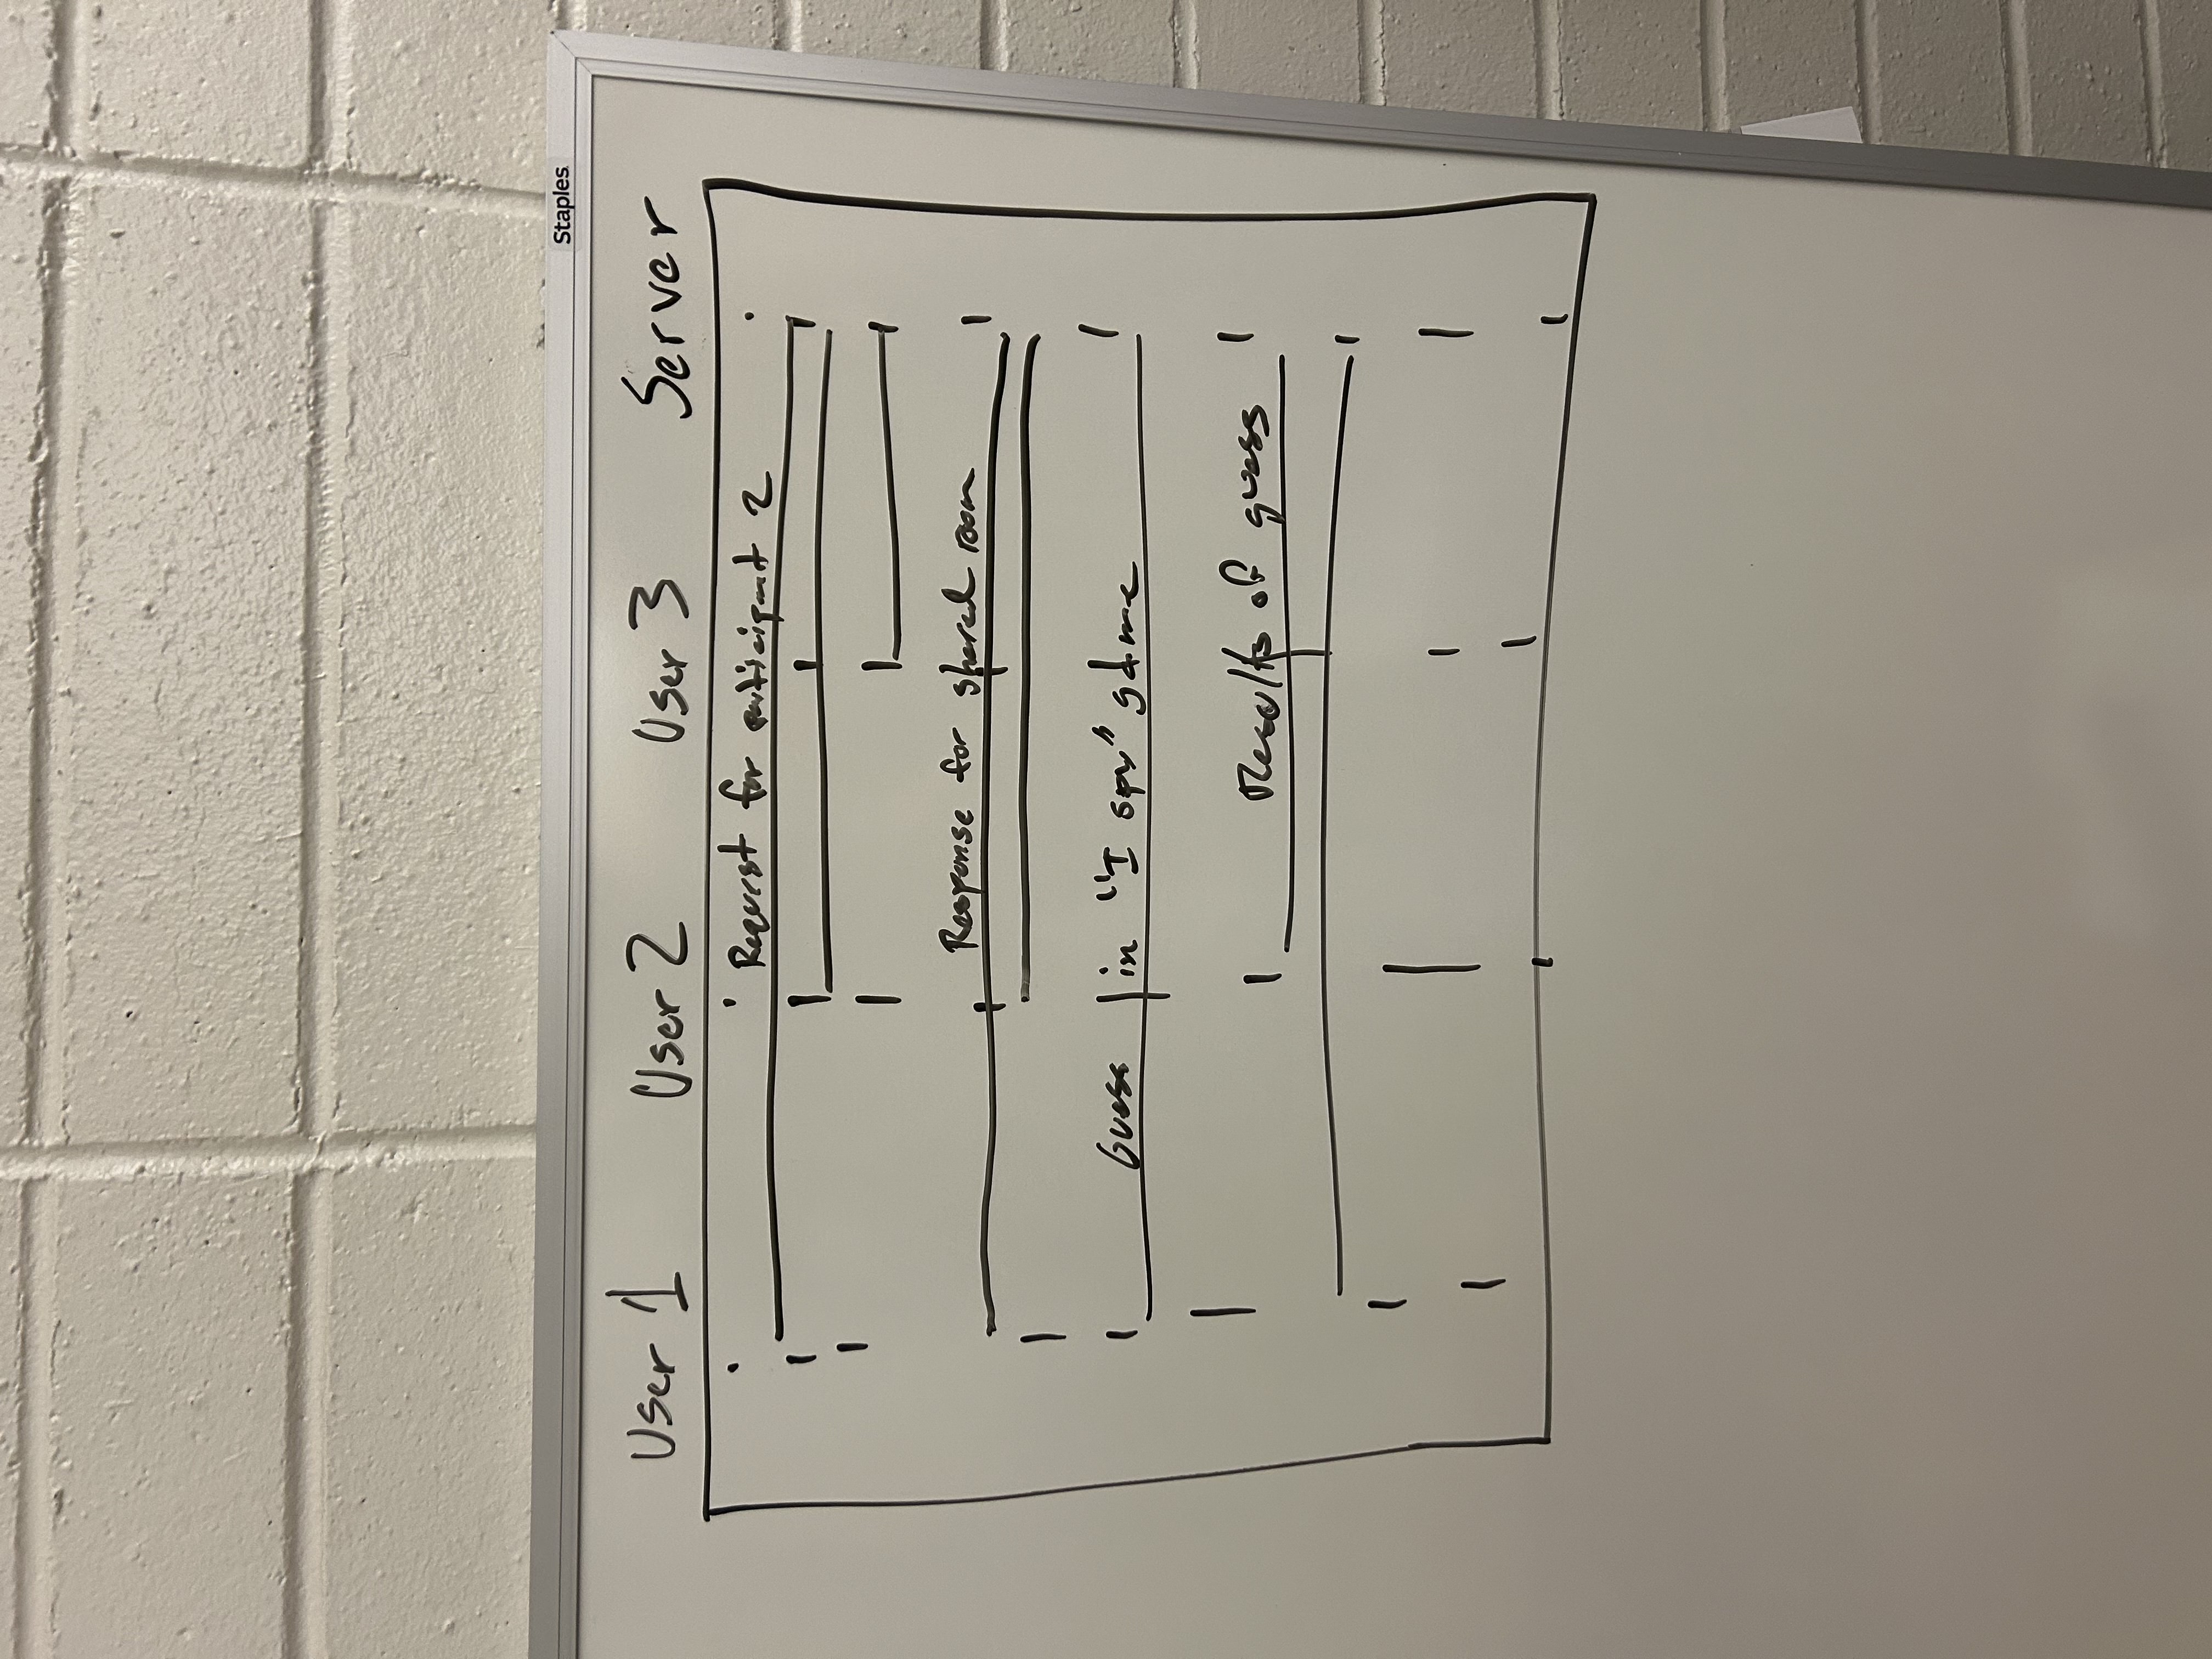 Staples
User 1 User 2 User 3 Server
Request for participant 2
Response for shared room
Guess in "I spy" game
Results of guess